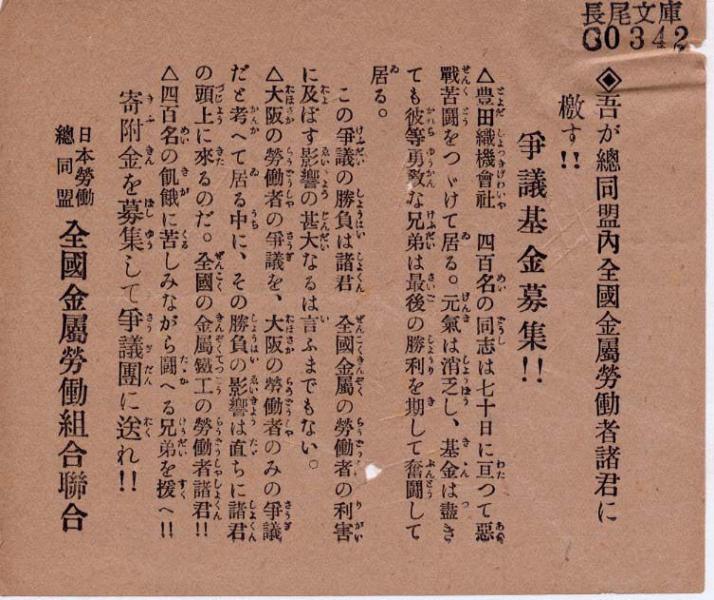 長尾文庫
G0342
◈吾が總同盟內全國金屬勞働者諸君に
檄す!!
爭議基金募集!!
△豊田織機會社 四百名の同志は七十日に亘つて惡
戰苦鬪をつゞけて居る。元氣は消乏し、基金は盡き
ても彼等勇敢な兄弟は最後の勝利を期して奮鬪して
居る。
この爭議の勝負は諸君 全國金屬の勞働者の利害
に及ぼす影響の甚大なるは言ふまでもない。
△大阪の勞働者の爭議を、大阪の勞働者のみの爭議
だと考へて居る中に、その勝負の影響は直ちに諸君
の頭上に來るのだ。全國の金屬鐵工の勞働者諸君!!
△四百名の飢餓に苦しみながら鬪へる兄弟を援へ!!
寄附金を募集して爭議團に送れ!!
日本勞働
總同盟
全國金屬勞働組合聯合